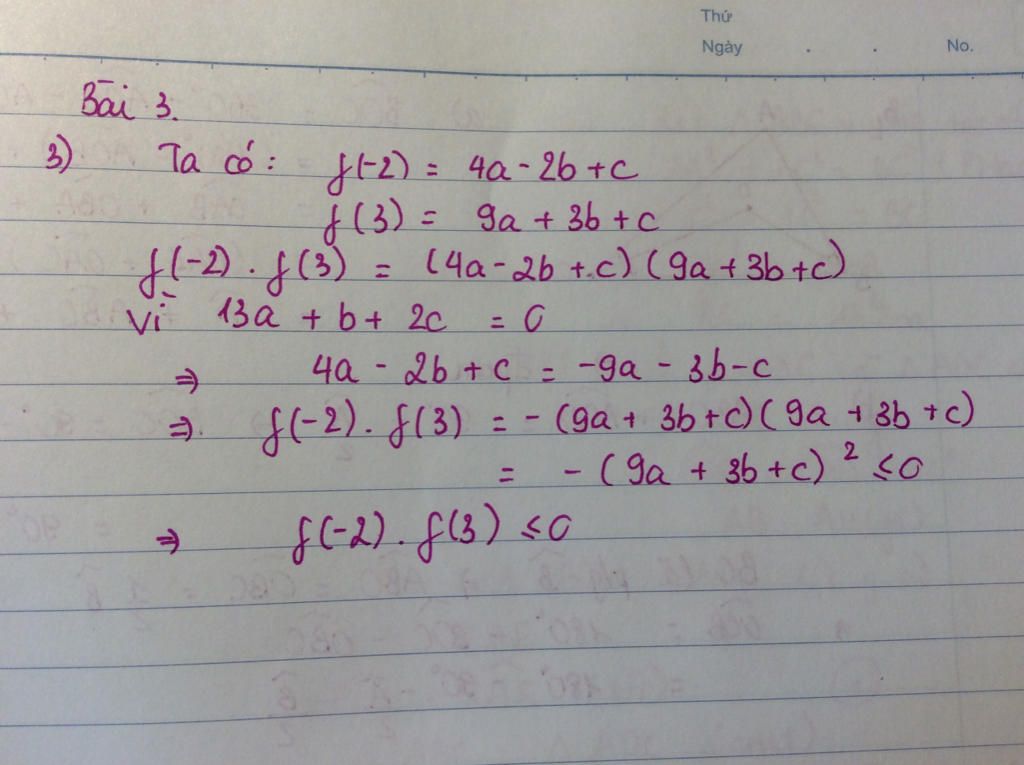 Thứ
Ngày . . No.
Bài 3.
3) Ta có: f(-2) = 4a - 2b + c
f(3) = 9a + 3b + c
f(-2) . f(3) = (4a - 2b + c) (9a + 3b + c)
Vì 13a + b + 2c = 0
⇒ 4a - 2b + c = -9a - 3b - c
⇒ f(-2) . f(3) = - (9a + 3b + c) (9a + 3b + c)
= - (9a + 3b + c)² ≤ 0
⇒ f(-2) . f(3) ≤ 0